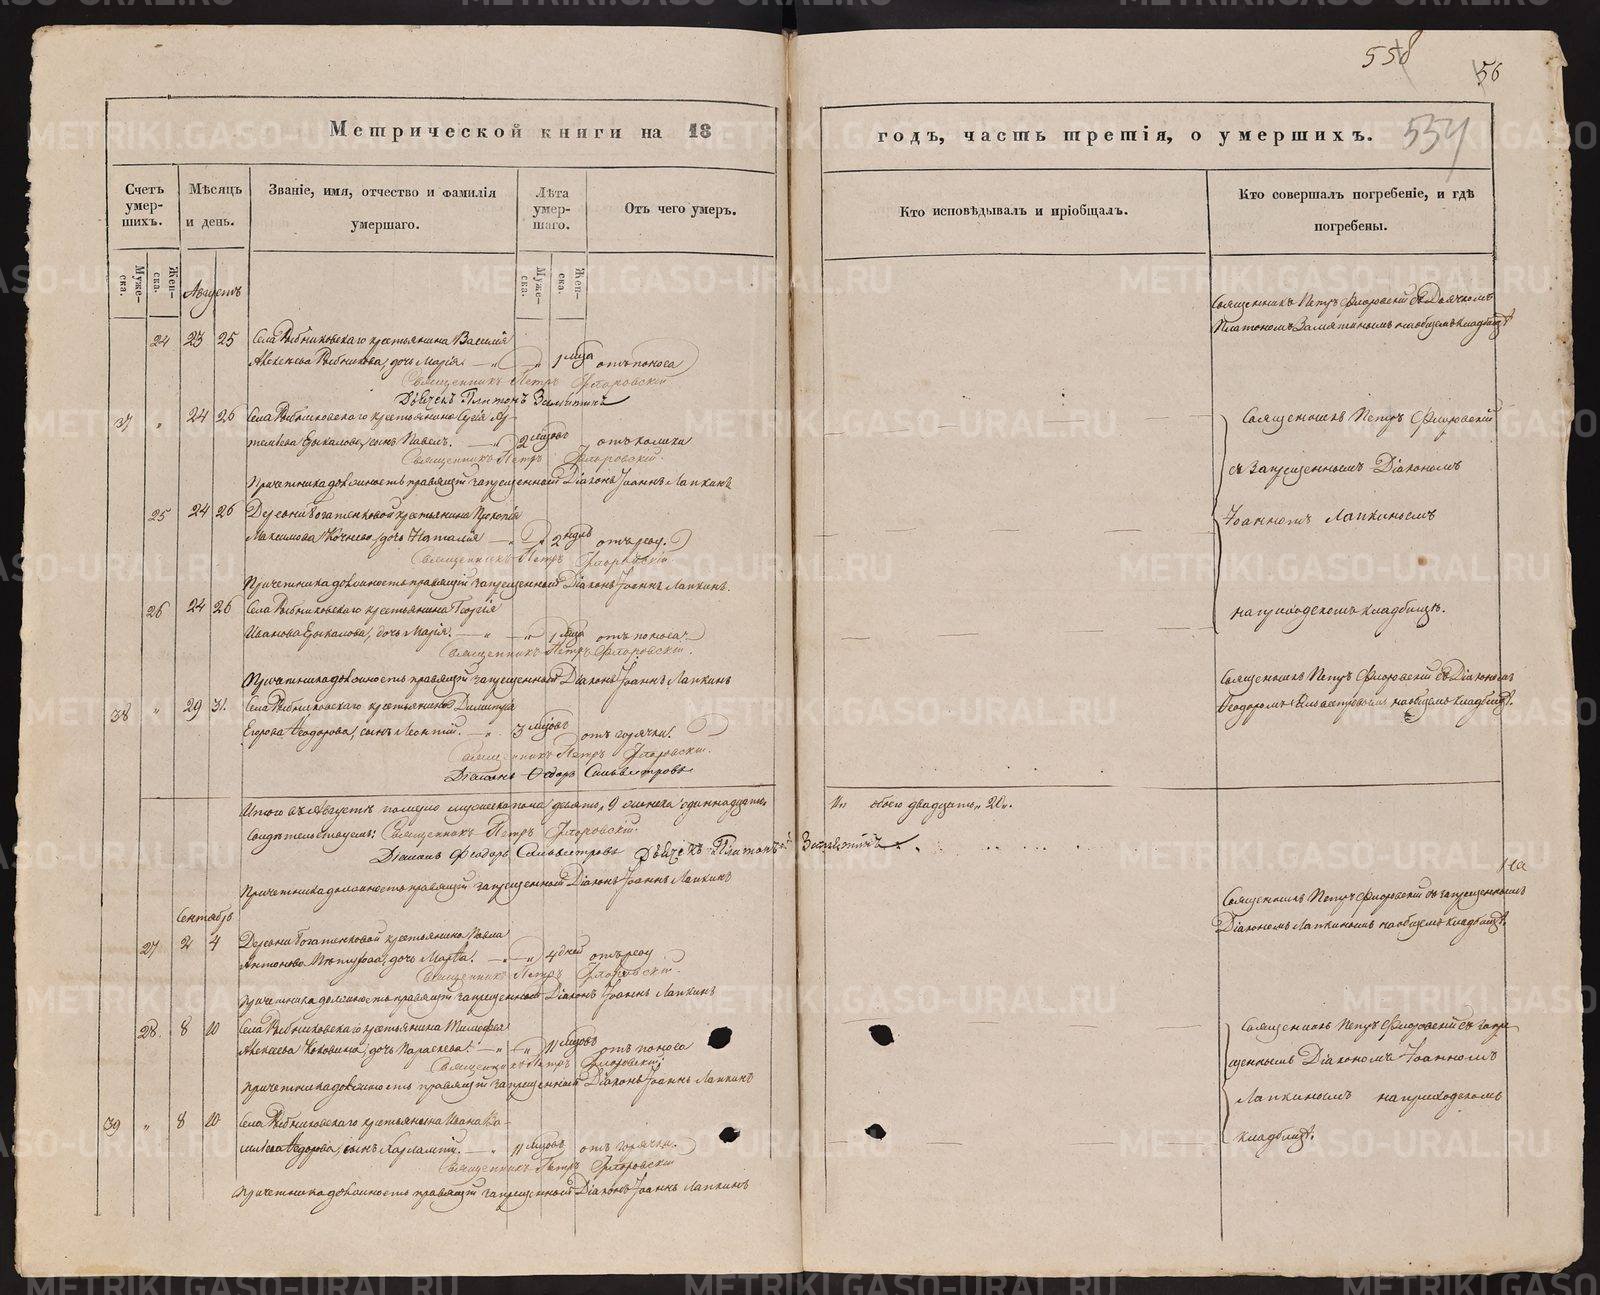 558
56
554
Метрической книги на 18
годъ, часть третія, о умершихъ.
Счетъ умер-шихъ.
Мѣсяцъ и день.
Званіе, имя, отчество и фамилія умершаго.
Лѣта умер-шаго.
Отъ чего умеръ.
Кто исповѣдывалъ и пріобщалъ.
Кто совершалъ погребеніе, и гдѣ погребены.
Муже-ска.
Жен-ска.
Муже-ска.
Жен-ска.
Августъ
24 23 25 Села Рыбниковскаго крестьянина Василія
Алексѣева Рыбникова, дочь Марія. — „ — „ 1 мца отъ поноса
Священникъ Петръ Флоровскій
Дьячекъ Платонъ Замятинъ
Священникъ Петръ Флоровскій съ Дьячкомъ
Платономъ Замятинымъ на общемъ кладбищѣ
37 „ 24 26 Села Рыбниковскаго крестьянина Сергія Ар-
темьева Цыкалова, сынъ Павелъ. — „ 2 мцовъ отъ колики
Священникъ Петръ Флоровскій.
Причетника должность правящій запрещенный Діаконъ Іоаннъ Лапкинъ
25 24 26 Деревни Богатенковой крестьянина Прокопія
Максимова Кочнева, дочь Наталія — „ — „ 2 ндль отъ роду.
Священникъ Петръ Флоровскій
Причетника должность правящій запрещенный Діаконъ Іоаннъ Лапкинъ.
26 24 26 Села Рыбниковскаго крестьянина Георгія
Иванова Цыкалова, дочь Марія. — „ — „ 1 мца отъ поноса.
Священникъ Петръ Флоровскій.
Причетника должность правящій запрещенный Діаконъ Іоаннъ Лапкинъ
Священникъ Петръ Флоровскій
съ запрещеннымъ Діакономъ
Іоанномъ Лапкинымъ
на приходскомъ кладбищѣ.
38 „ 29 31. Села Рыбниковскаго крестьянина Димитрія
Егорова Ѳеодорова, сынъ Леонтій. — „ 3 мцовъ отъ горячки.
Священникъ Петръ Флоровскій.
Діаконъ Ѳедоръ Сильвестровъ
Священникъ Петръ Флоровскій съ Діакономъ
Ѳеодоромъ Сильвестровымъ на общемъ кладбищѣ.
Итого въ Августѣ померло мужеска пола девять, 9 женска одиннадцать
11„ обоего двадцать„ 20„.
Свидѣтельствуемъ: Священникъ Петръ Флоровскій.
Діаконъ Ѳеодоръ Сильвестровъ Дьячекъ Платонъ Замятинъ
Причетника должность правящій запрещенный Діаконъ Іоаннъ Лапкинъ
Сентябрь
27 2 4 Деревни Богатенковой крестьянина Павла
Антонова, дочь Марѳа. — „ — „ 4 дней отъ роду
Священникъ Петръ Флоровскій.
Причетника должность правящій запрещенный Діаконъ Іоаннъ Лапкинъ
Священникъ Петръ Флоровскій съ запрещеннымъ
Діакономъ Лапкинымъ на общемъ кладбищѣ.
28. 8 10 Села Рыбниковскаго крестьянина Тимофея
Алексѣева Коковина, дочь Параскева. — „ — „ 11 мцовъ отъ поноса
Священникъ Петръ Флоровскій.
Причетника должность правящій запрещенный Діаконъ Іоаннъ Лапкинъ
39 „ 8 10 Села Рыбниковскаго крестьянина Ивана Ва-
сильева Ѳедорова, сынъ Харлампій. — „ 11 мцовъ отъ горячки.
Священникъ Петръ Флоровскій
Причетника должность правящій запрещенный Діаконъ Іоаннъ Лапкинъ
Священникъ Петръ Флоровскій съ запре-
щеннымъ Діакономъ Іоанномъ
Лапкинымъ на приходскомъ
кладбищѣ.
METRIKI.GASO-URAL.RU